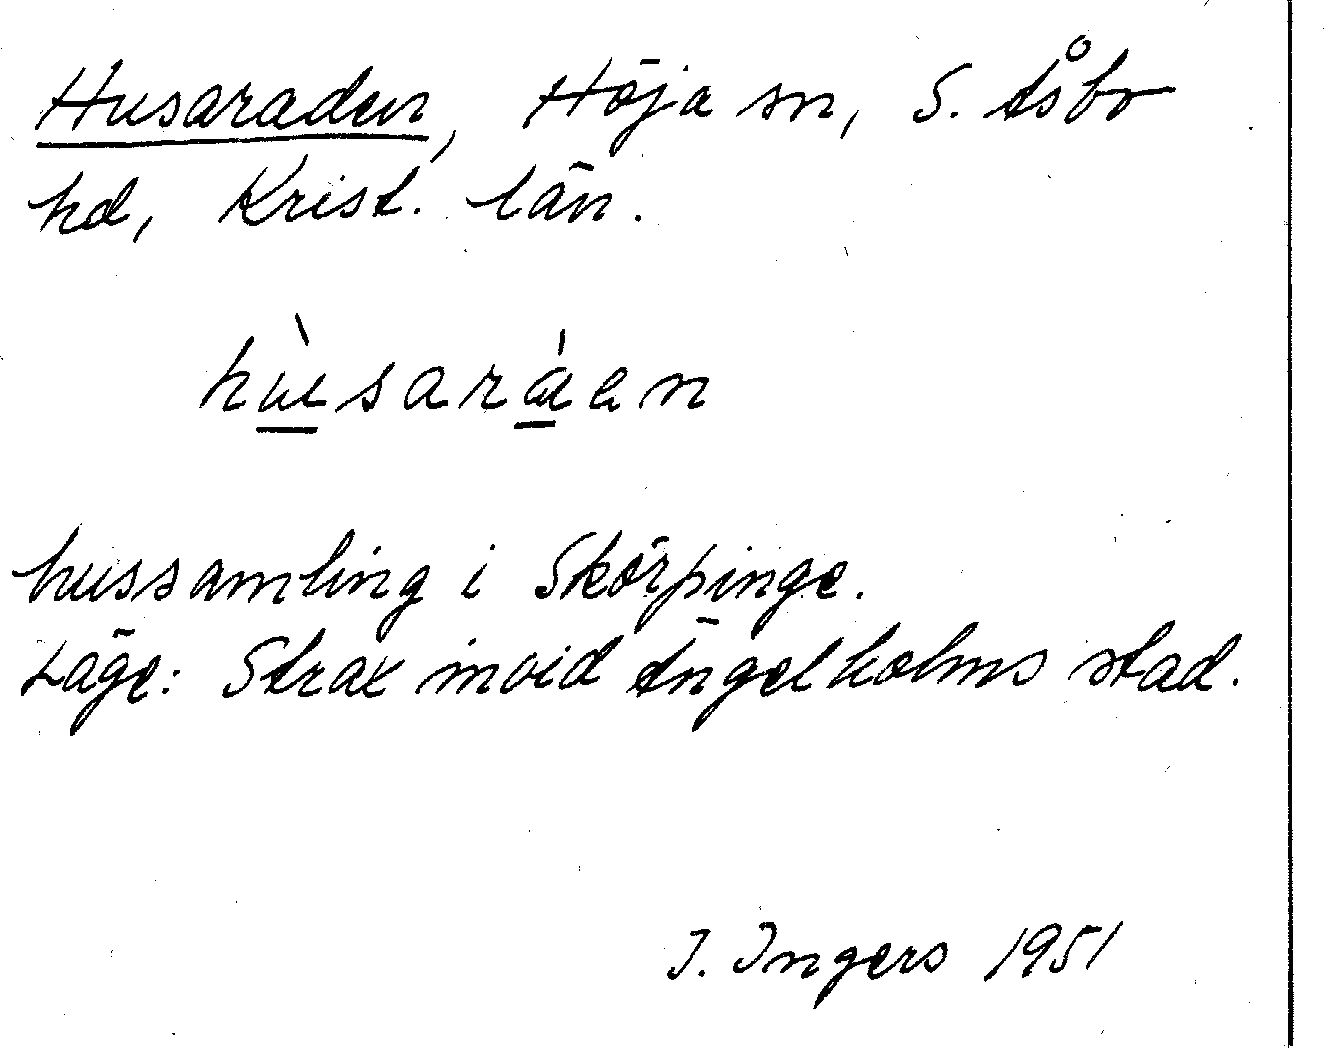 Husaraden, Höja sn, S. Åsbo
hd, Krist. län.
hùsaráen
hussamling i Skörpinge.
Läge: Strax invid Ängelholms stad.
I. Ingers 1951